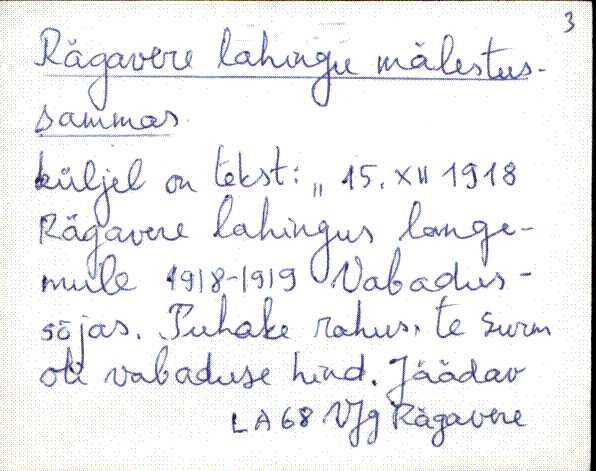 3
Rägavere lahingu mälestus-
sammas
küljel on tekst: „ 15. XII 1918
Rägavere lahingus lange-
nuile 1918-1919 Vabadus-
sõjas. Puhake rahus, te surm
oli vabaduse hind. Jäädav
LA 68 VJg Rägavere